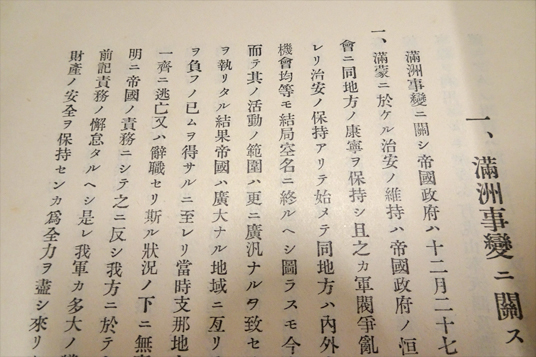 一、滿洲事變ニ關ス
滿洲事變ニ關シ帝國政府ハ十二月二十七
一、滿蒙ニ於ケル治安ノ維持ハ帝國政府ノ恒
會ニ同地方ノ康寧ヲ保持シ且之カ軍閥爭亂
レリ治安ノ保持アリテ始メテ同地方ハ內外
機會均等モ結局空名ニ終ルヘシ圖ラスモ今
而テ其ノ活動ノ範圍ハ更ニ廣汎ナルヲ致セ
ヲ執リタル結果帝國ハ廣大ナル地域ニ亙リ
ヲ負フノ已ムヲ得サルニ至レリ當時支那地
一齊ニ逃亡又ハ辭職セリ斯ル狀況ノ下ニ無
明ニ帝國ノ責務ニシテ之ニ反シ我方ニ於テ
前記責務ノ懈怠タルヘシ是レ我軍カ多大ノ
財產ノ安全ヲ保持センカ爲全力ヲ盡シ來リ